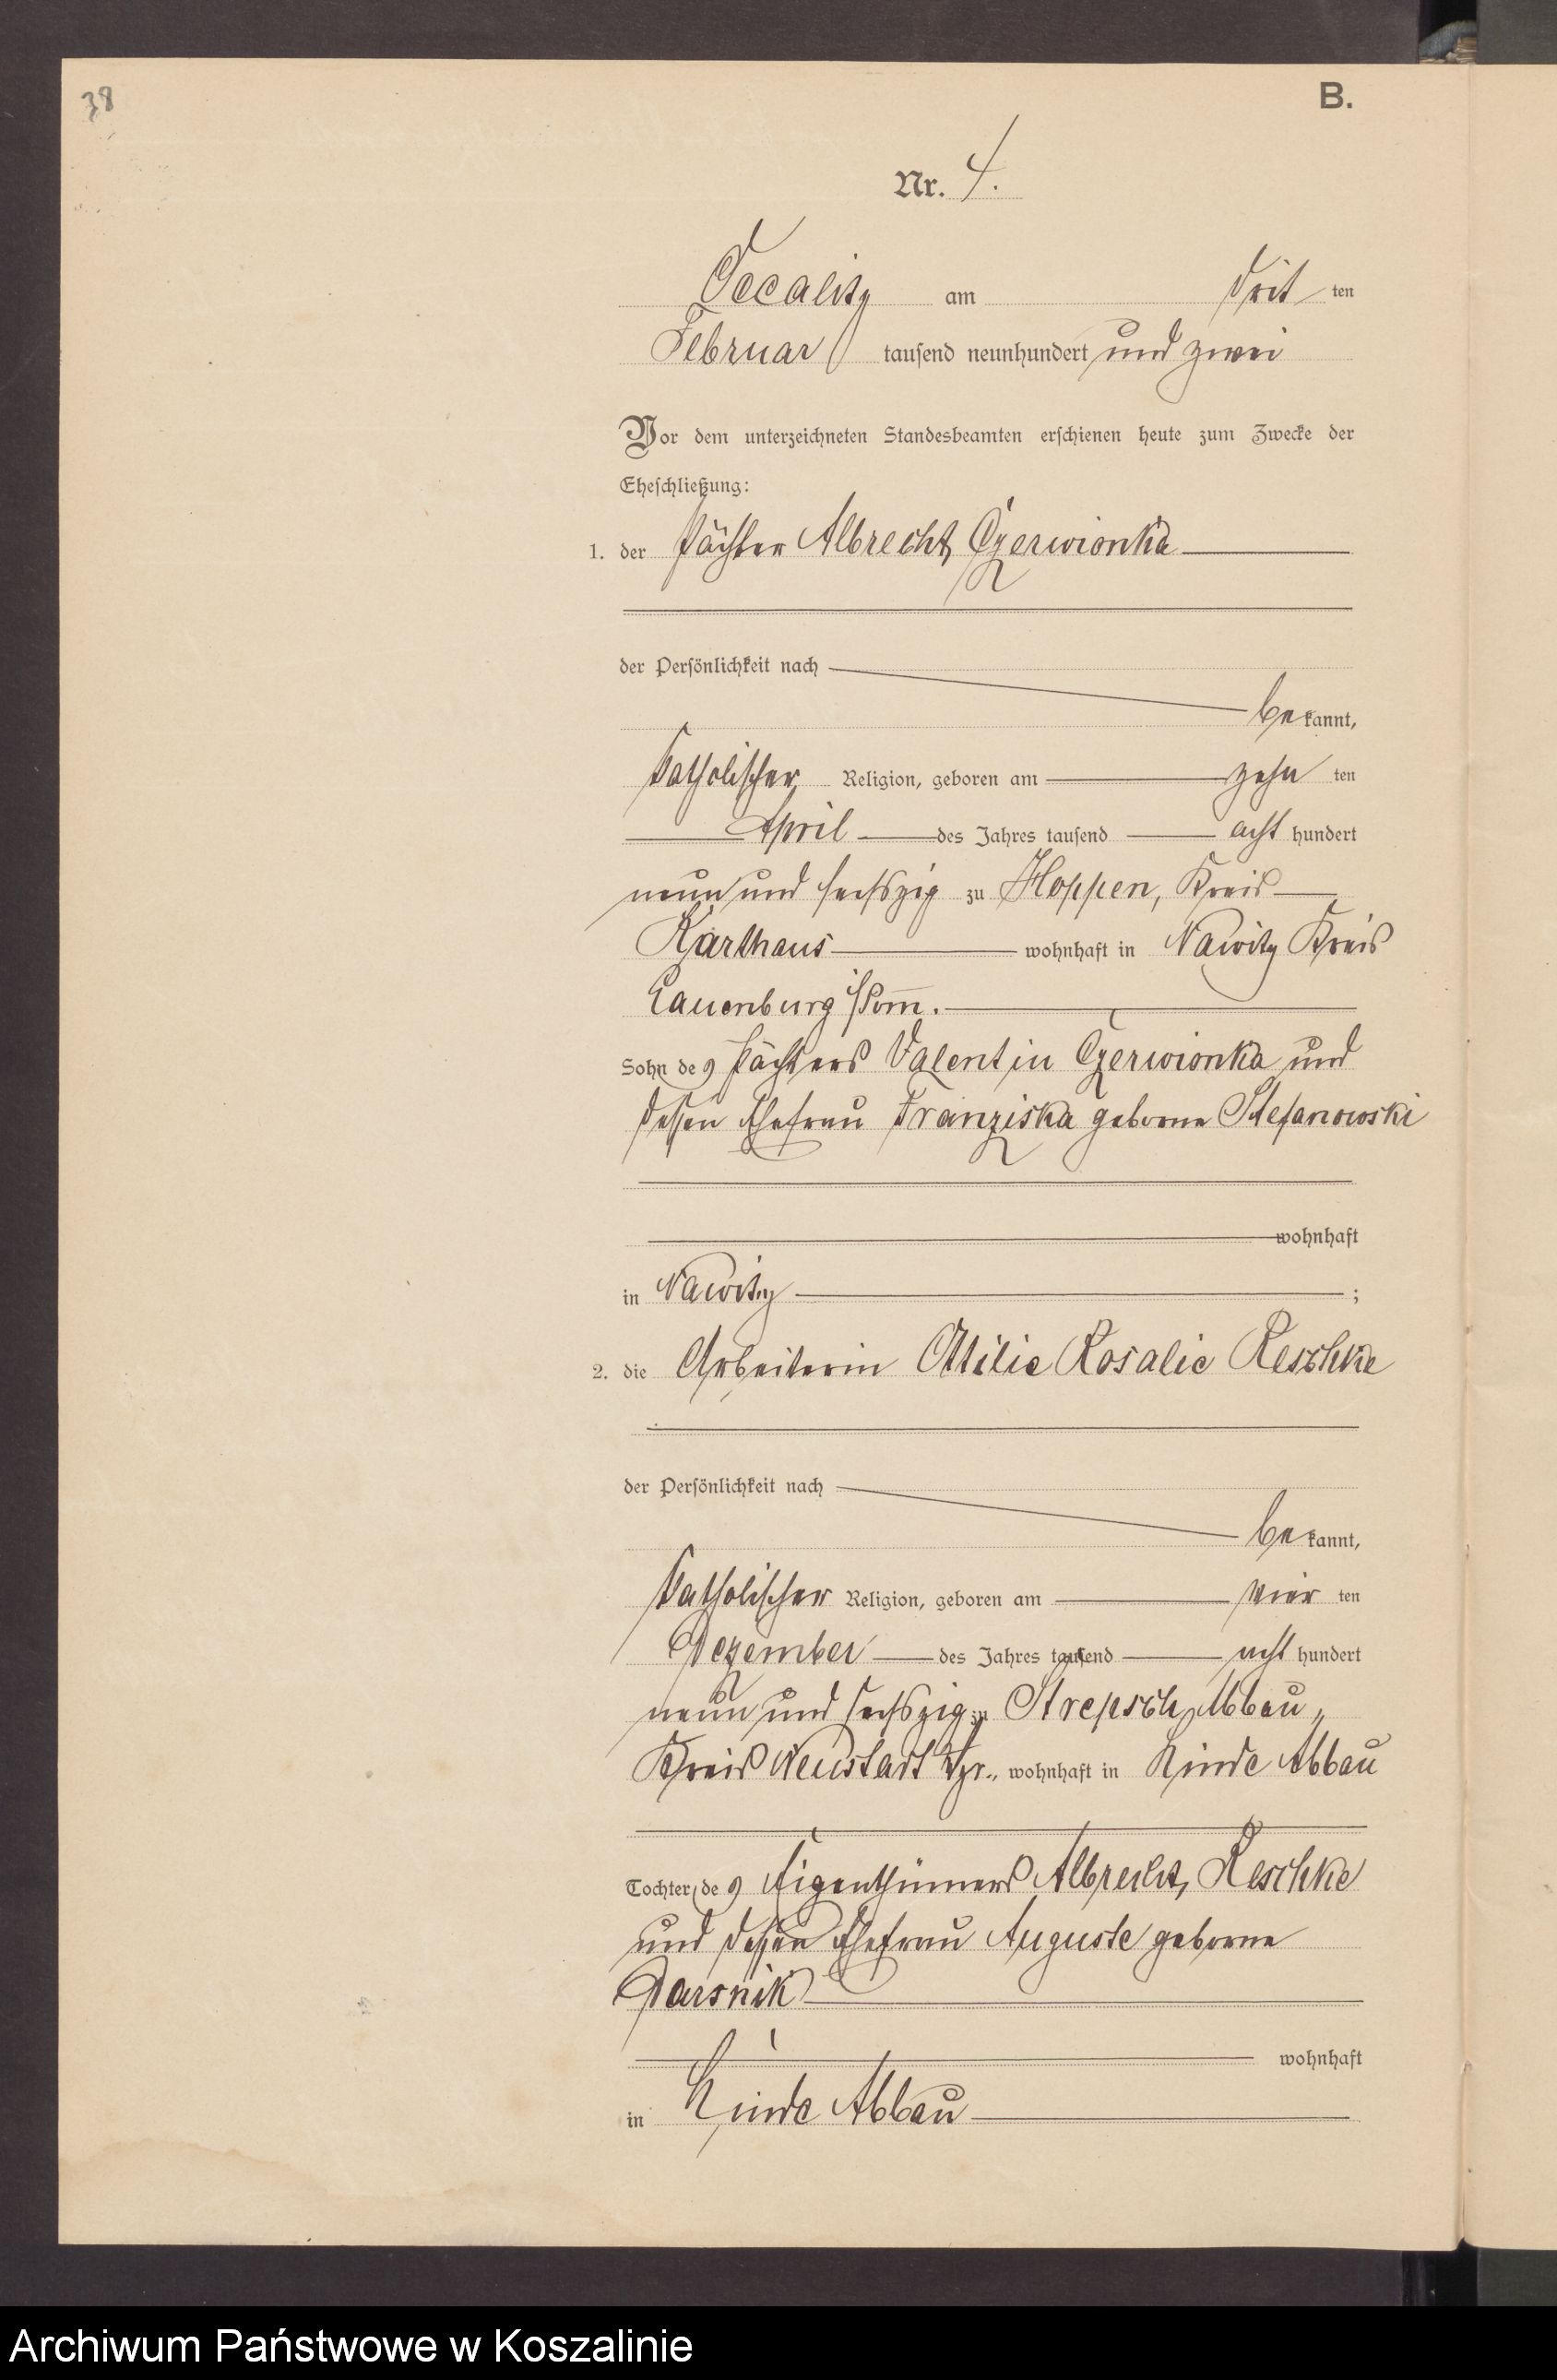 38
B.
Nr. 4.
Occalitz am drit ten
Februar tausend neunhundert und zwei
Vor dem unterzeichneten Standesbeamten erschienen heute zum Zwecke der
Eheschließung:
1. der Pächter Albrecht Czerwionka
der Persönlichkeit nach
bekannt,
katholischer Religion, geboren am zehn ten
April des Jahres tausend acht hundert
neun und sechszig zu Hoppen, Kreis
Karthaus wohnhaft in Nawitz Kreis
Lauenburg i/Pom̅.
Sohn des Pächters Valentin Czerwionka und
dessen Ehefrau Franziska geborne Stefanowski
wohnhaft
in Nawitz ;
2. die Arbeiterin Ottilie Rosalie Reschke
der Persönlichkeit nach
bekannt,
katholischer Religion, geboren am vier ten
Dezember des Jahres tausend acht hundert
neun und sechszig zu Strepsch Abbau,
Kreis Neustadt Wpr., wohnhaft in Linde Abbau
Tochter des Eigenthümers Albrecht Reschke
und dessen Ehefrau Auguste geborne
Parsnik
wohnhaft
in Linde Abbau
Archiwum Państwowe w Koszalinie